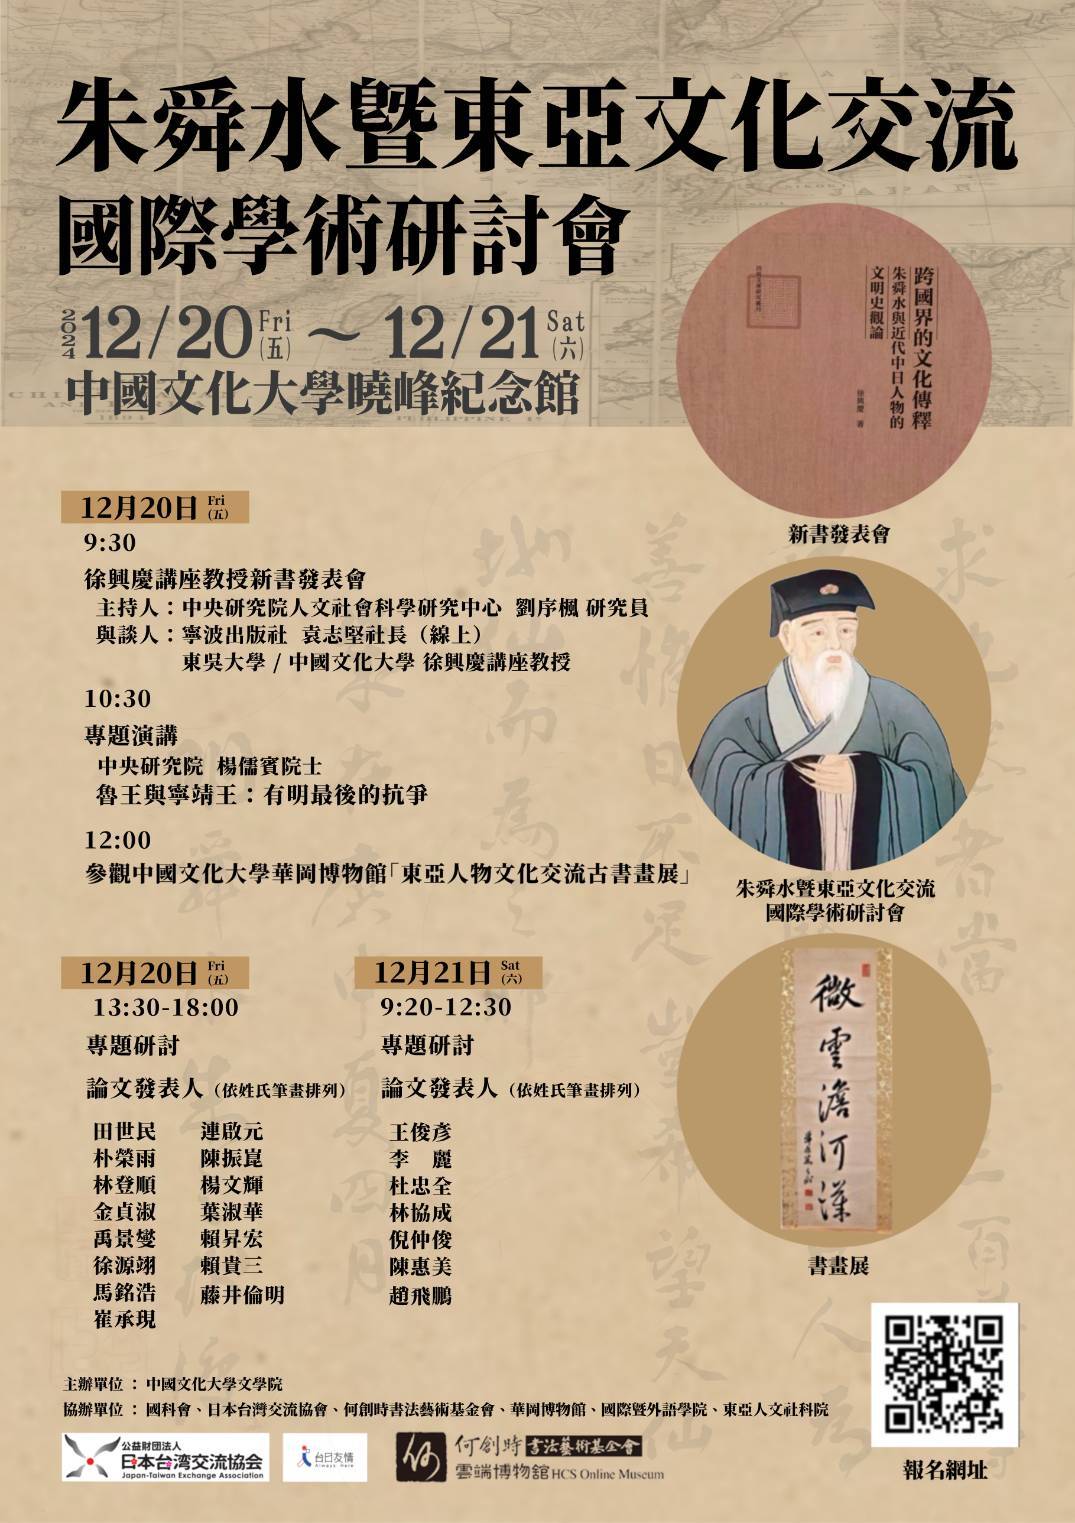 朱舜水暨東亞文化交流
國際學術研討會
2024 12/20 Fri (五) ～ 12/21 Sat (六)
中國文化大學曉峰紀念館
跨國界的文化傳釋
朱舜水與近代中日人物的
文明史觀論
徐興慶 著
新書發表會
12月20日 Fri (五)
9:30
徐興慶講座教授新書發表會
主持人：中央研究院人文社會科學研究中心 劉序楓 研究員
與談人：寧波出版社 袁志堅社長（線上）
東吳大學 / 中國文化大學 徐興慶講座教授
10:30
專題演講
中央研究院 楊儒賓院士
魯王與寧靖王：有明最後的抗爭
12:00
參觀中國文化大學華岡博物館「東亞人物文化交流古書畫展」
朱舜水暨東亞文化交流
國際學術研討會
12月20日 Fri (五)
13:30-18:00
專題研討
論文發表人（依姓氏筆畫排列）
田世民 連啟元
朴榮雨 陳振崑
林登順 楊文輝
金貞淑 葉淑華
禹景燮 賴昇宏
徐源翊 賴貴三
馬銘浩 藤井倫明
崔承現
12月21日 Sat (六)
9:20-12:30
專題研討
論文發表人（依姓氏筆畫排列）
王俊彥
李 麗
杜忠全
林協成
倪仲俊
陳惠美
趙飛鵬
微雲澹河漢
書畫展
主辦單位：中國文化大學文學院
協辦單位：國科會、日本台灣交流協會、何創時書法藝術基金會、華岡博物館、國際暨外語學院、東亞人文社科院
公益財団法人
日本台湾交流協会
Japan-Taiwan Exchange Association
台日友情
Always Here
何創時 書法藝術基金會
雲端博物館 HCS Online Museum
報名網址